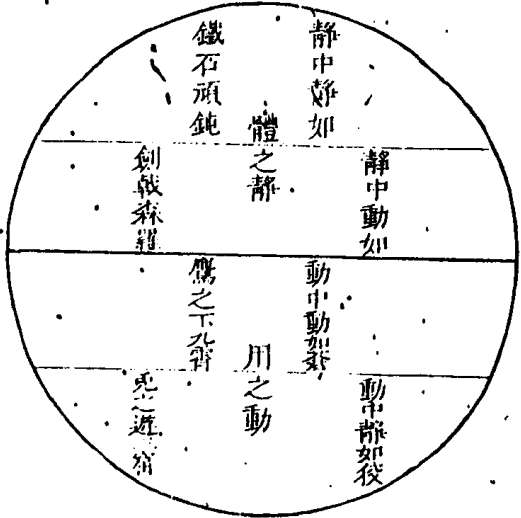 靜中靜如
鐵石頑鈍
體之靜
靜中動如
劍戟森羅
動中動如蒼
鷹之下九霄
用之動
動中靜如狡
兎之遊窟